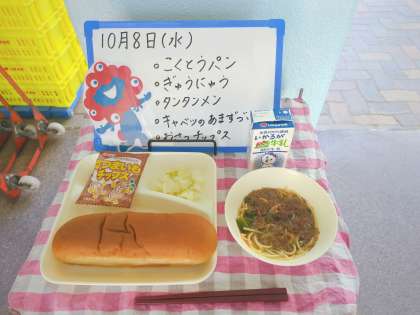 10月8日(水)
○こくとうパン
○ぎゅうにゅう
○タンタンメン
○キャベツのあまずづけ
○おさつチップス
いかるが
牛乳
チップス